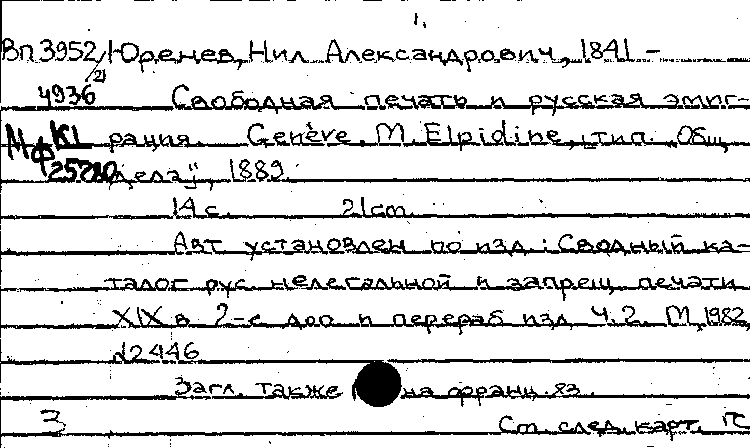 1.
Вп 3952/21 Юренев, Нил Александрович, 1841 –
4936 Свободная печать и русская эмиг-
Мф К1 рация. Genève, M. Elpidine, тип. „Общ.
25780 дела", 1889.
14 с. 21 cm.
Авт установлен по изд.: Сводный ка-
талог рус нелегальной и запрещ печати
XIX в 2-е доп и перераб изд Ч. 2. М, 1982,
2446
Загл. также на франц. яз.
3 См. след. карт.